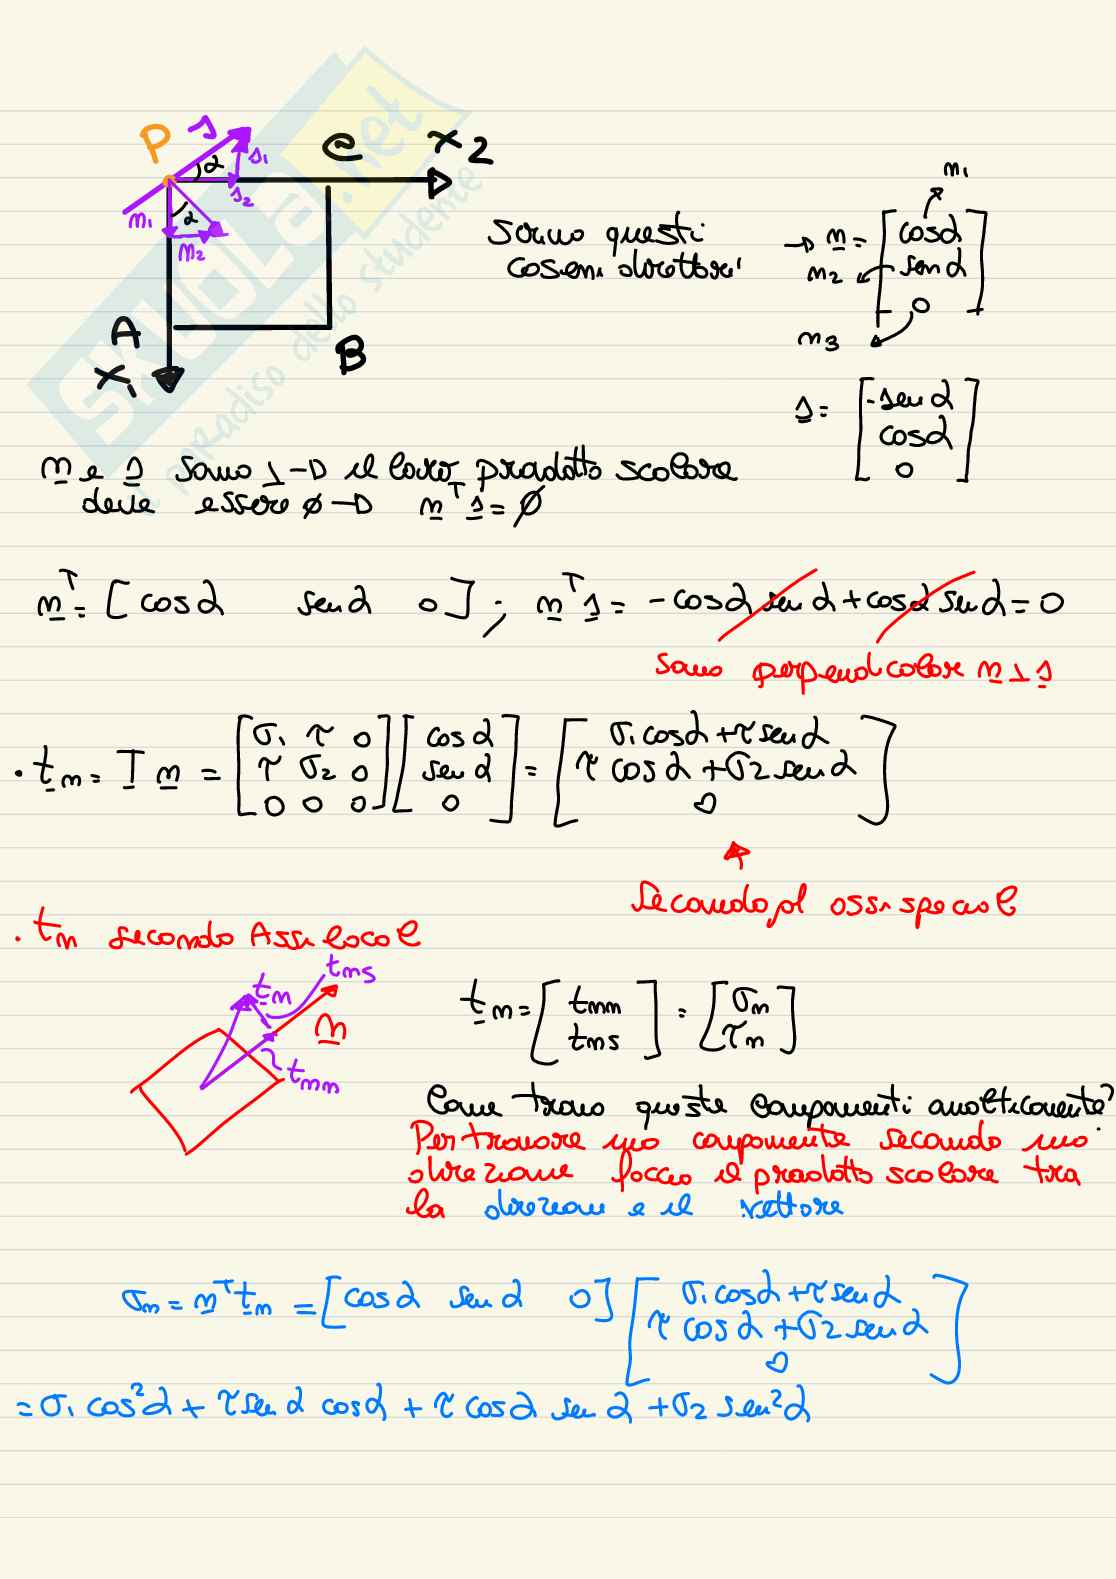 SKUOLA.net
il paradiso dello studente
P s α s₁ C x₂
s₂
n₁ α n₂
A
x₁
B
Scrivo questi
coseni direttori
n₁
→ n = [cosα
n₂ senα
n₃ 0]
s = [-senα
cosα
0]
n e s sono ⊥ → il loro prodotto scalare
deve essere ∅ → nᵀs = ∅
nᵀ = [cosα senα 0] ; nᵀs = -cosα senα + cosα senα = 0
sono perpendicolare n ⊥ s
· tn = T n = [σ₁ τ 0; τ σ₂ 0; 0 0 0] [cosα; senα; 0] = [σ₁cosα + τsenα; τcosα + σ₂senα; 0]
Secondo gl assi spaziali
· tn secondo Assi locali
tn tns
n
tnn
tn = [tnn; tns] = [σn; τn]
Come trovo queste componenti analiticamente?
Per trovare una componente secondo una
direzione faccio il prodotto scalare tra
la direzione e il vettore
σn = nᵀtn = [cosα senα 0] [σ₁cosα + τsenα; τcosα + σ₂senα; 0]
= σ₁cos²α + τsenα cosα + τcosα senα + σ₂sen²α